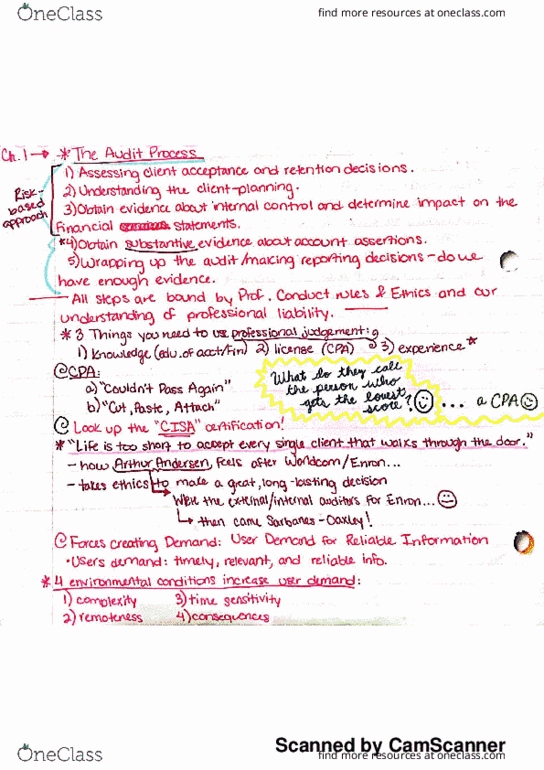 OneClass
find more resources at oneclass.com
Ch. 1 → * The Audit Process
Risk-based approach
1) Assessing client acceptance and retention decisions.
2) Understanding the client-planning.
3) Obtain evidence about internal control and determine impact on the
financial statements.
*4) Obtain substantive evidence about account assertions.
5) Wrapping up the audit/making reporting decisions - do we
have enough evidence.
All steps are bound by Prof. Conduct rules & Ethics and our
understanding of professional liability.
* 3 Things you need to use professional judgement:
1) knowledge (edu. of acct/fin) 2) license (CPA) 3) experience *
@ CPA:
a) "Couldn't Pass Again"
b) "Cut, Paste, Attach"
What do they call
the person who
gets the lowest
score? ... a CPA
@ Look up the "CISA" certification!
* "Life is too short to accept every single client that walks through the door."
- how Arthur Andersen, feels after Worldcom/Enron...
- takes ethics to make a great, long-lasting decision
→ Were the external/internal auditors for Enron...
↳ then came Sarbanes-Oaxley!
@ Forces creating Demand: User Demand for Reliable Information
• Users demand: timely, relevant, and reliable info.
* 4 environmental conditions increase user demand:
1) complexity 3) time sensitivity
2) remoteness 4) consequences
Scanned by CamScanner
OneClass
find more resources at oneclass.com